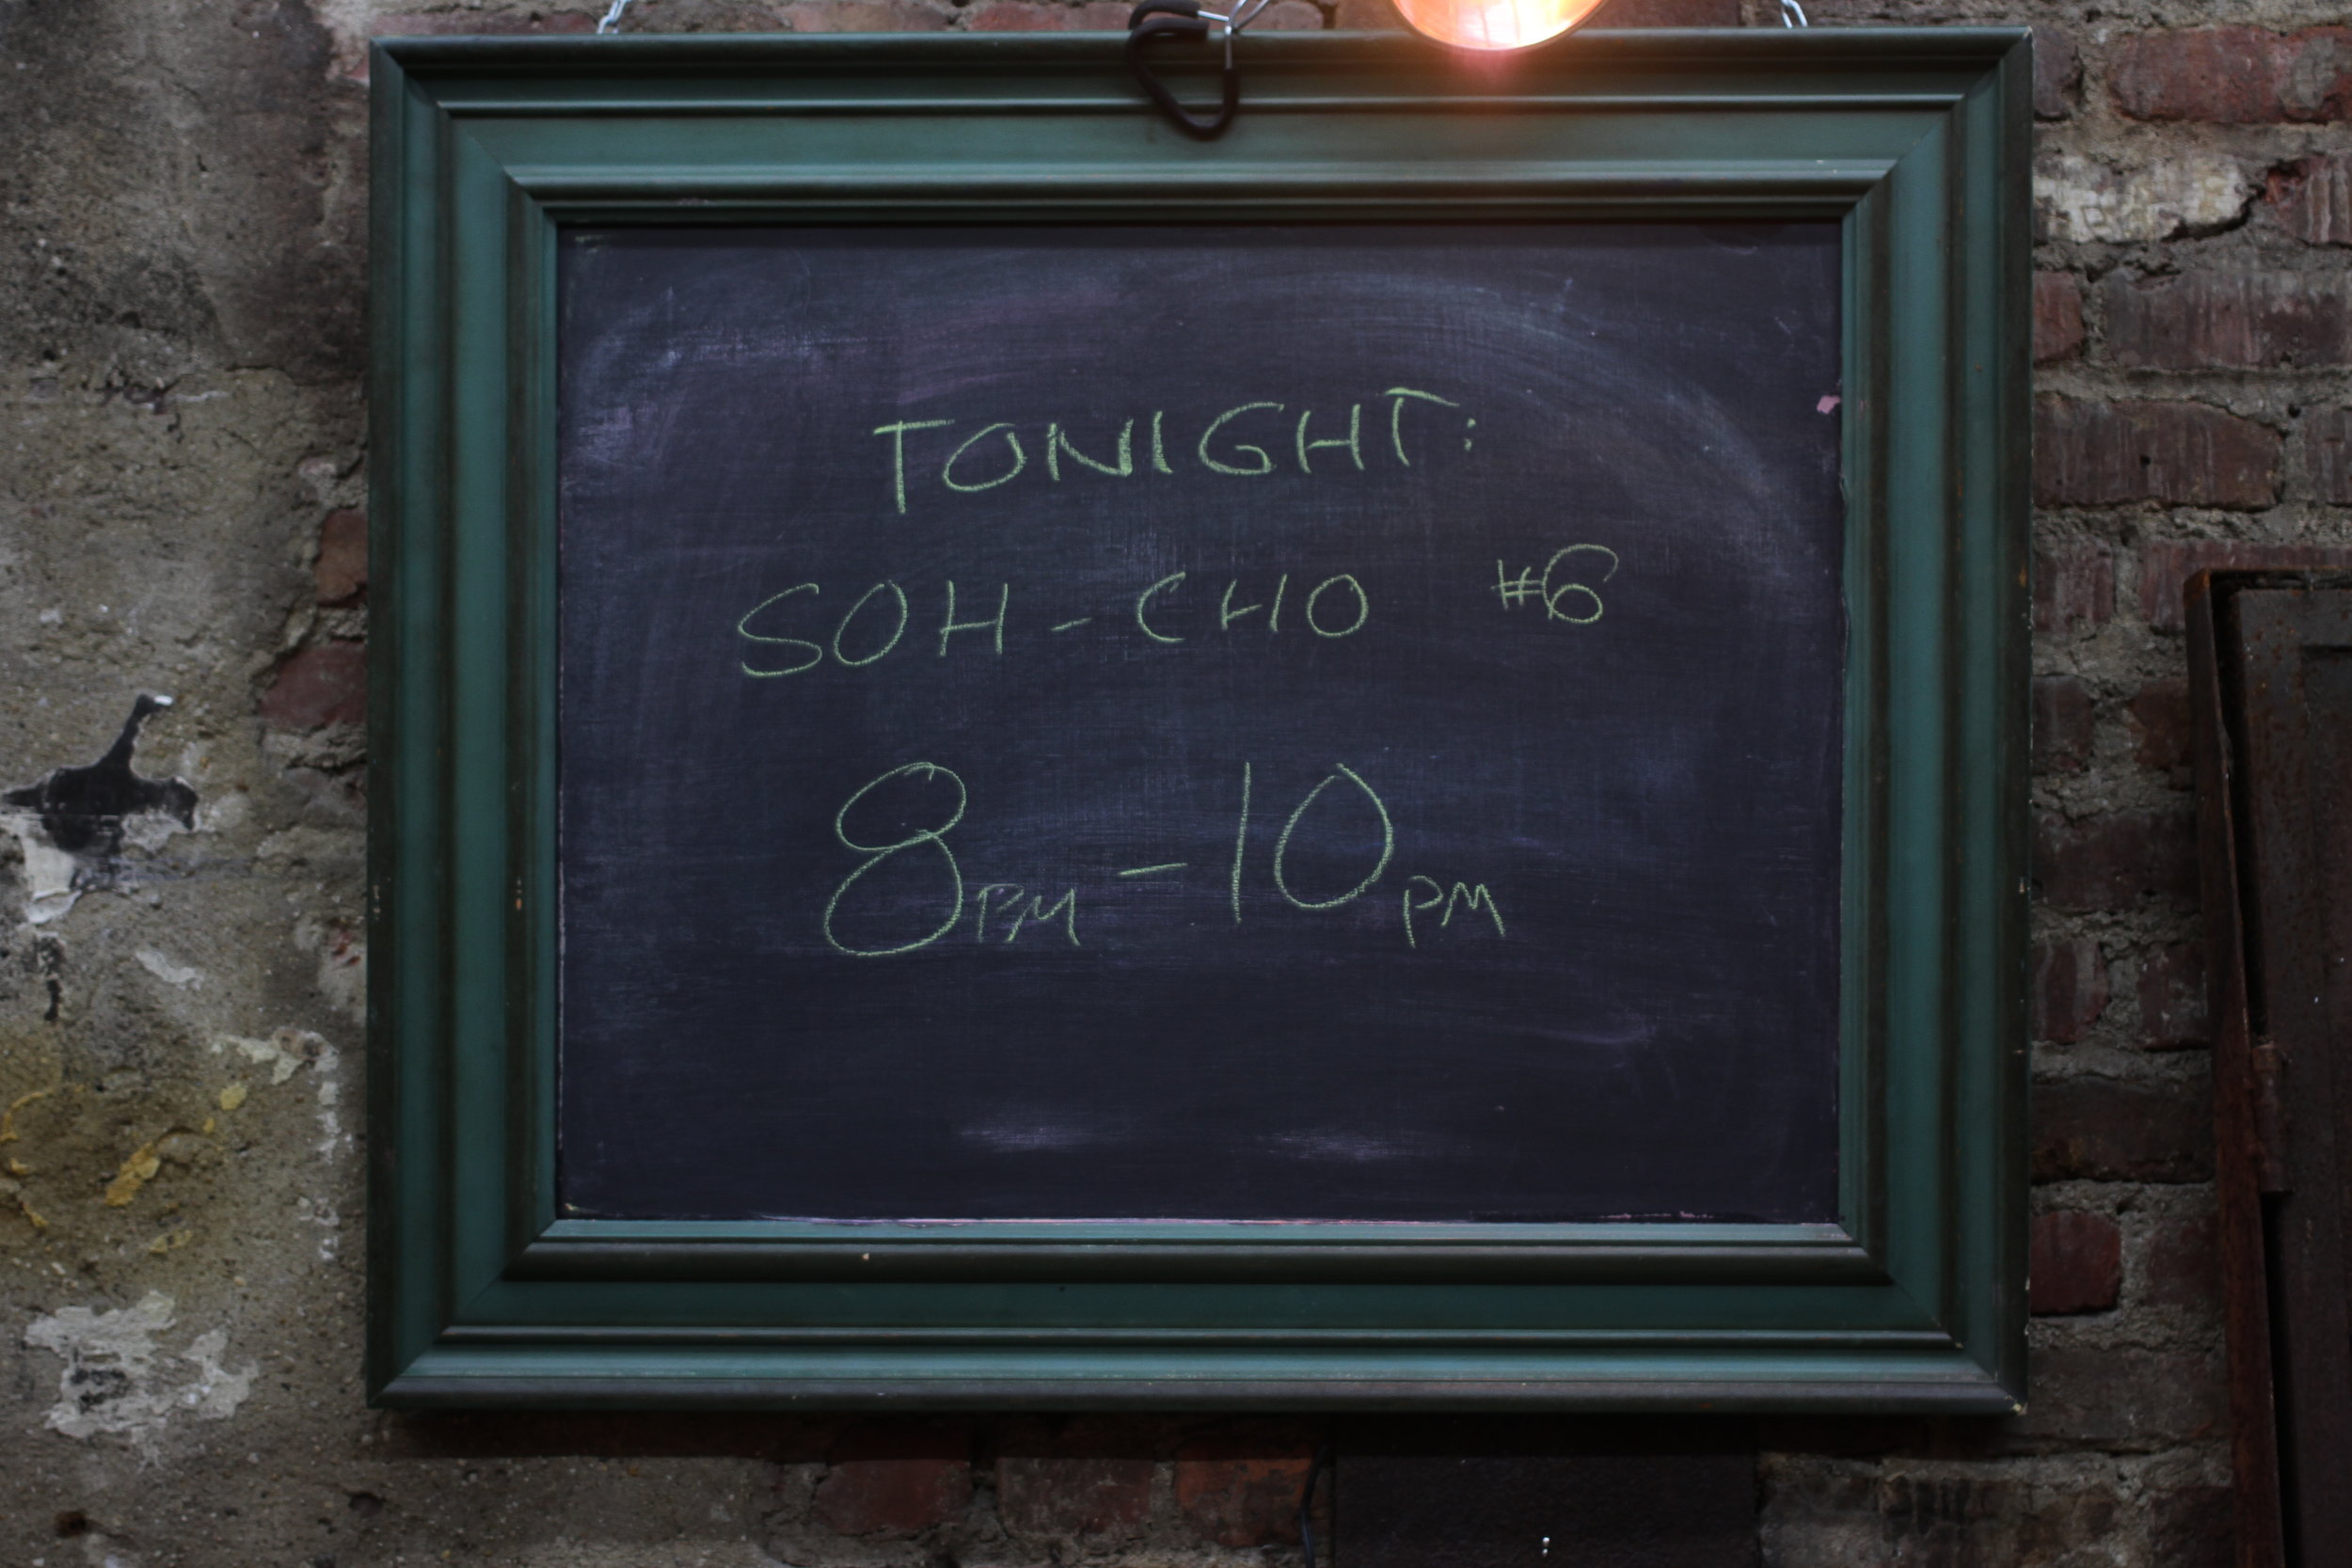 TONIGHT:
SOH-CHO #6
8PM-10PM